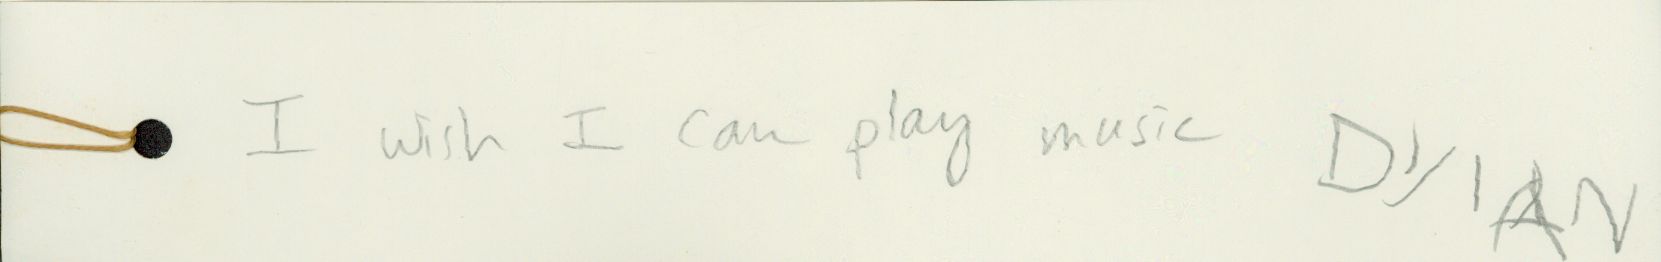 I wish I can play music DylAN